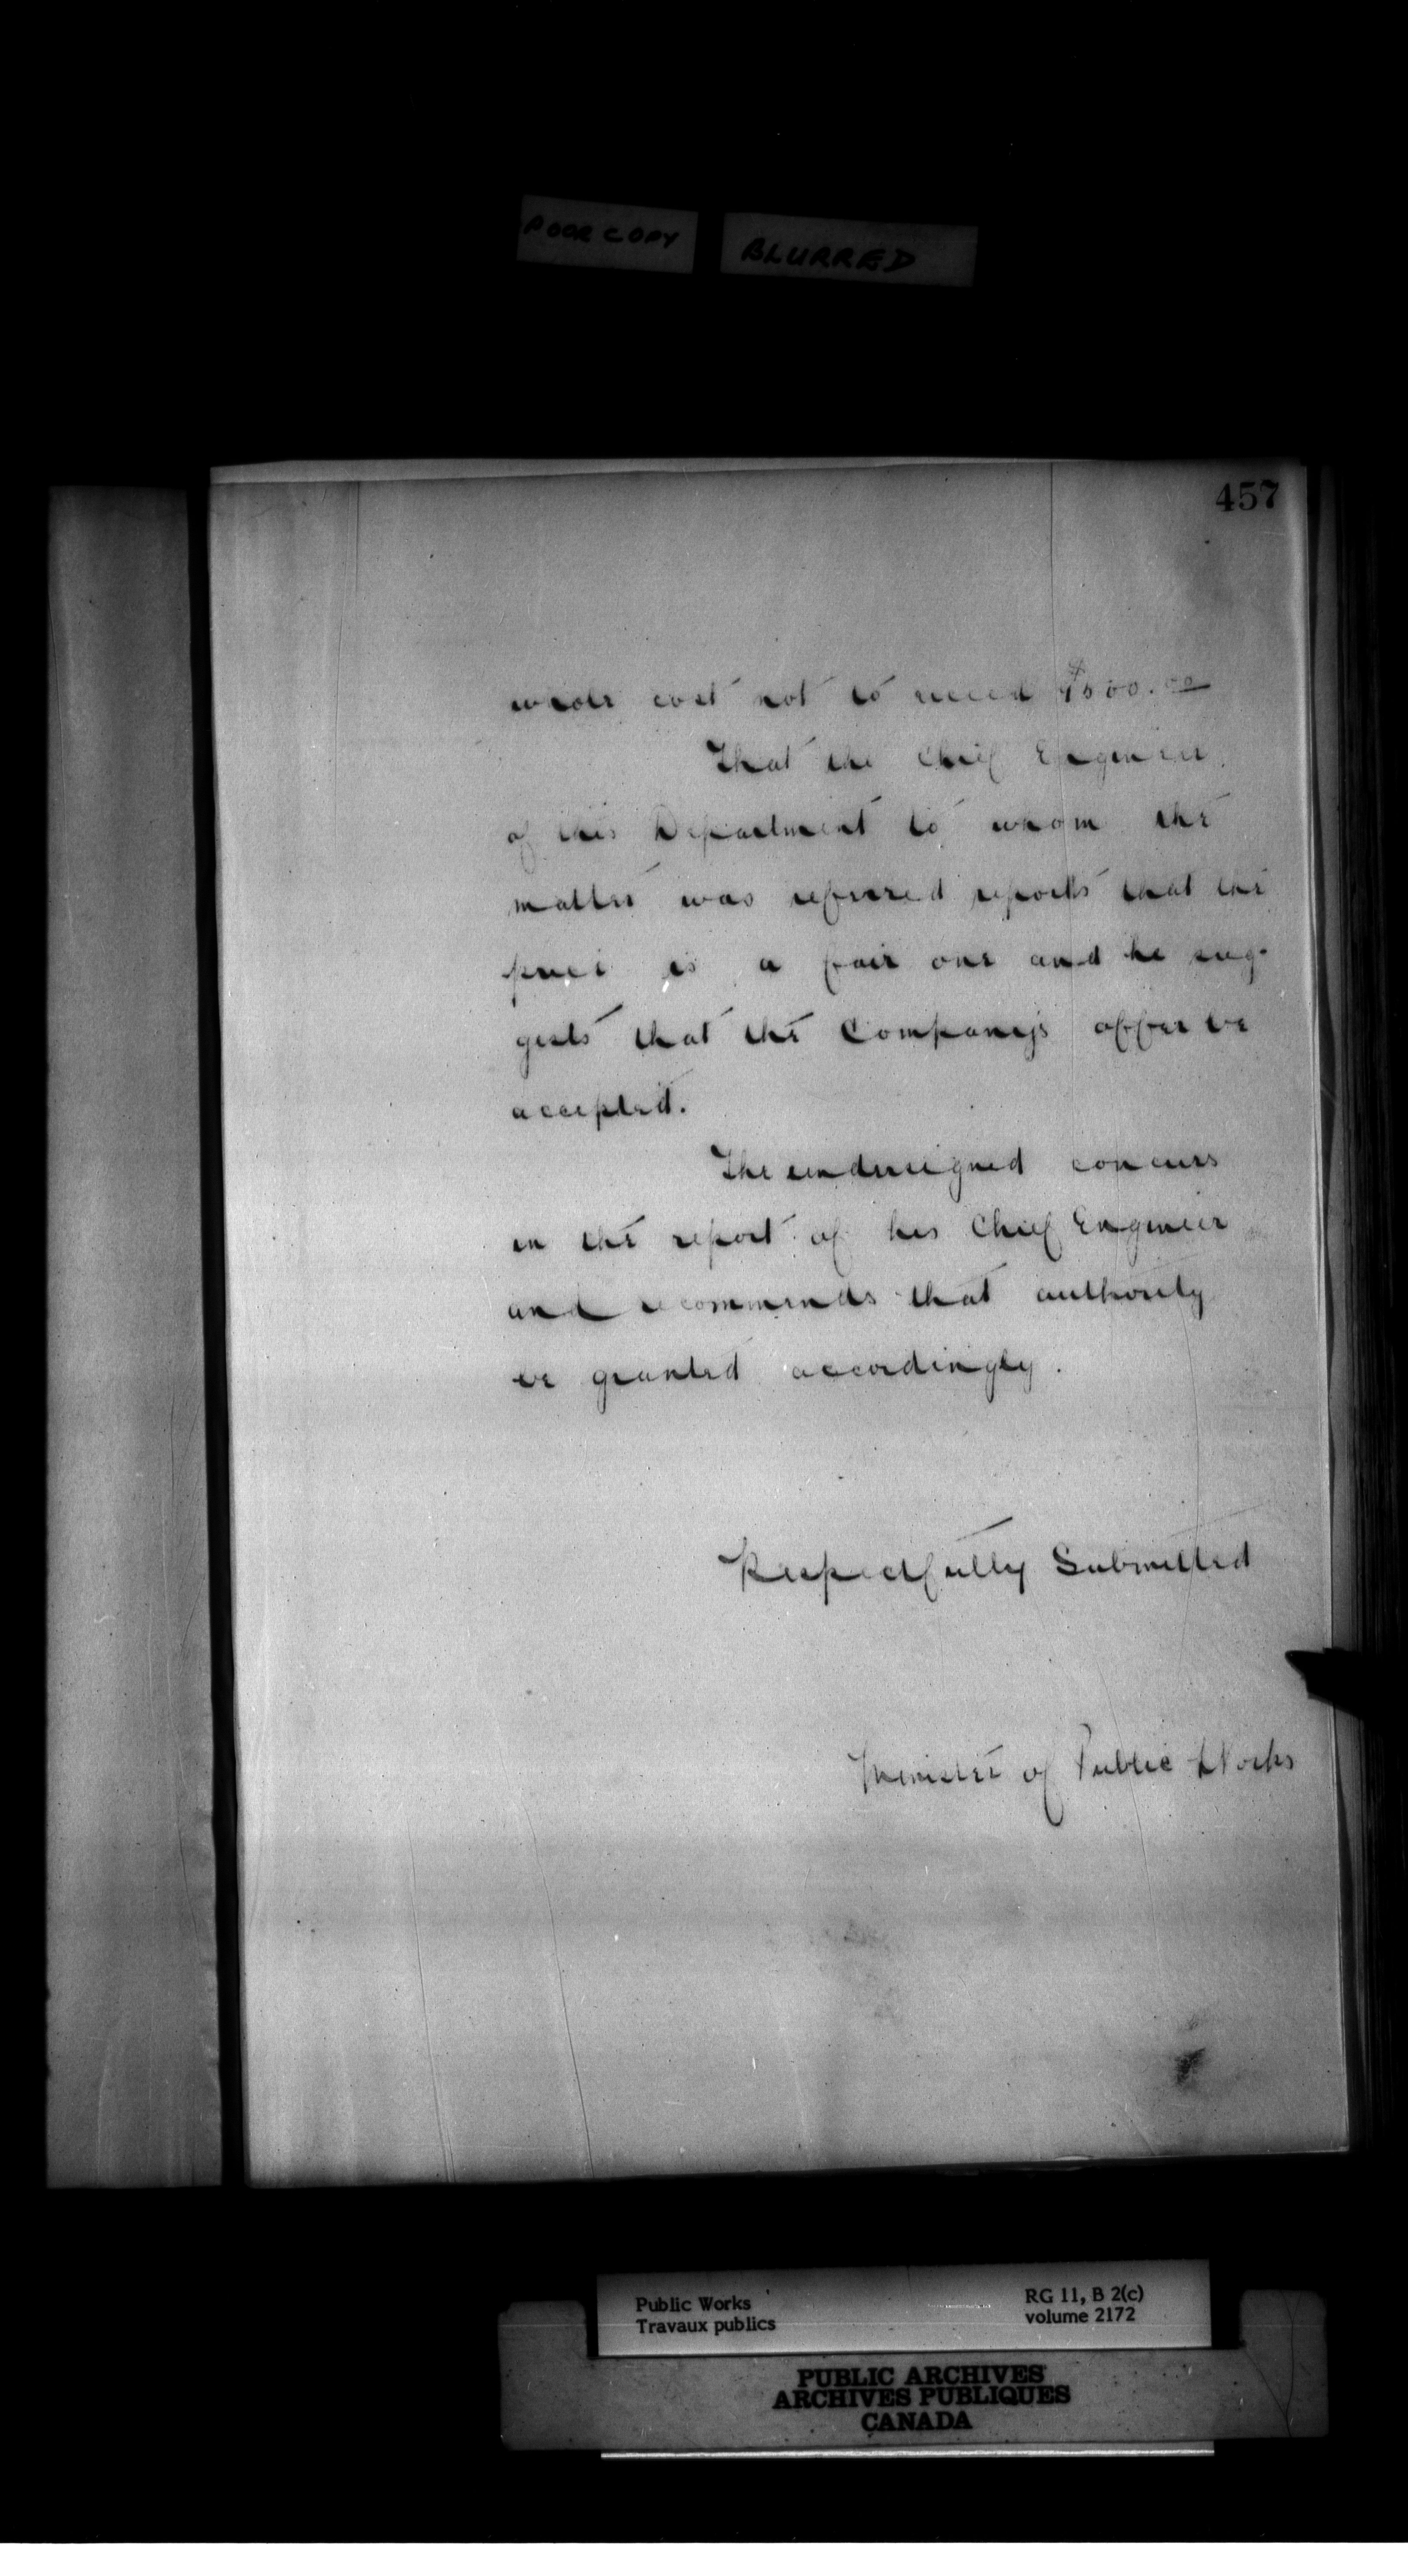 POOR COPY
BLURRED
457
whole cost not to exceed
That the Chief Engineer
of this Department to whom the
matter was referred reports that the
price is a fair one and he sug-
gests that the Company's offer be
accepted.
The undersigned concurs
in the report of his Chief Engineer
and recommends that authority
be granted accordingly.
Respectfully Submitted
Minister of Public Works
Public Works
Travaux publics
RG 11, B 2(c)
volume 2172
PUBLIC ARCHIVES
ARCHIVES PUBLIQUES
CANADA